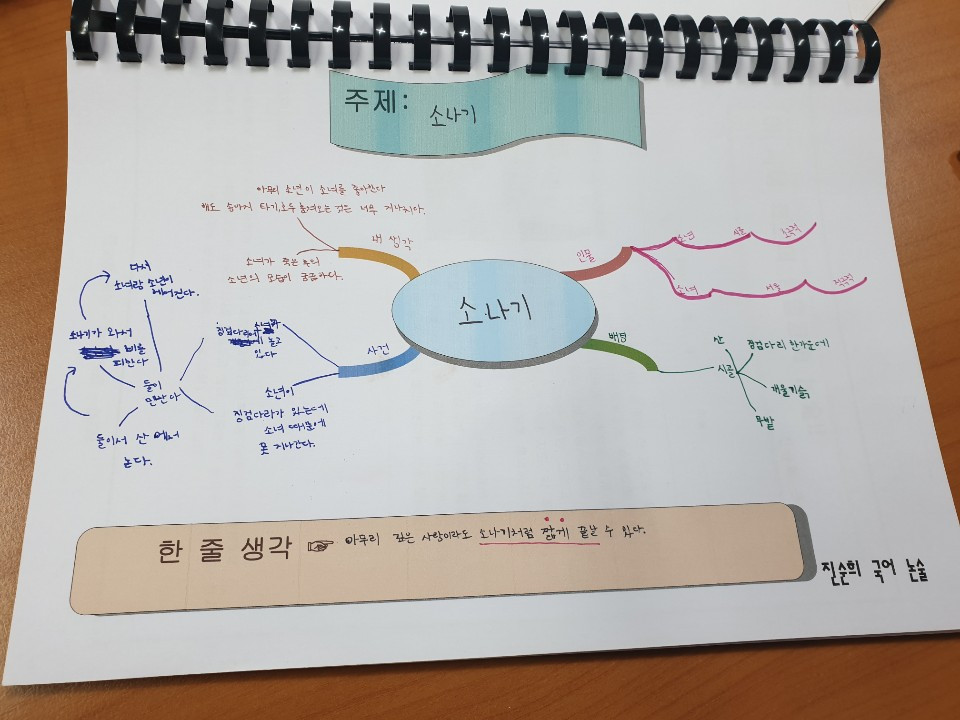 주제: 소나기
아무리 소년이 소녀를 좋아한다
해도 송아지 타기, 호두 훔쳐오는 것은 너무 지나치다.
내 생각
소녀가 죽은 후의
소년의 모습이 궁금하다.
소나기
인물
소년
시골
소극적
소녀
서울
적극적
배경
산
징검다리 한가운데
시골
개울기슭
무밭
사건
소녀가
징검다리에
놀고
있다
소년이
징검다리가 있는데
소녀 때문에
못 지나간다.
둘이
만난다
둘이서 산에서
논다.
소나기가 와서
비를
피한다
다시
소녀랑 소년이
헤어진다.
한 줄 생각 ☞ 아무리 깊은 사랑이라도 소나기처럼 짧게 끝날 수 있다.
진순희 국어 논술